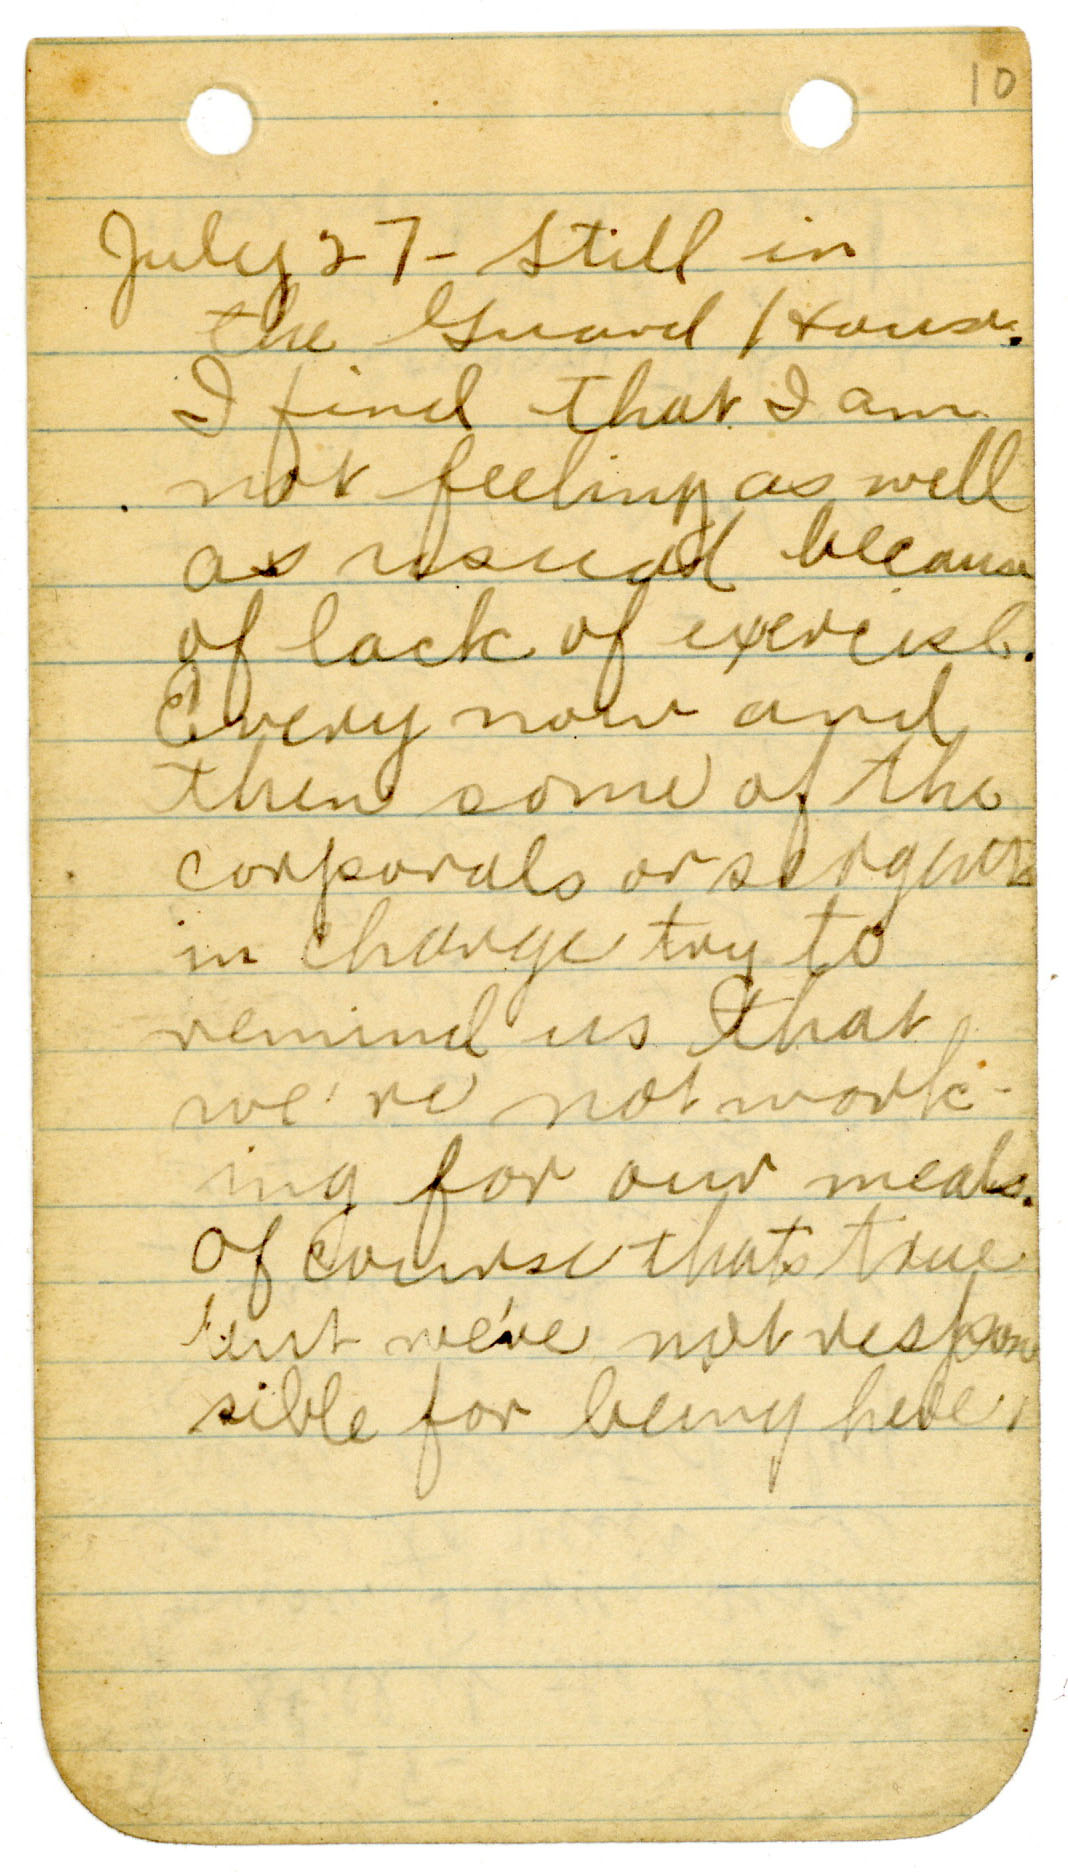 10
July 27 - Still in
the Guard House.
I find that I am
not feeling as well
as usual because
of lack of exercise.
Every now and
then some of the
corporals or sergents
in charge try to
remind us that
we're not work-
ing for our meals.
Of course thats true
but we're not respon
sible for being here.